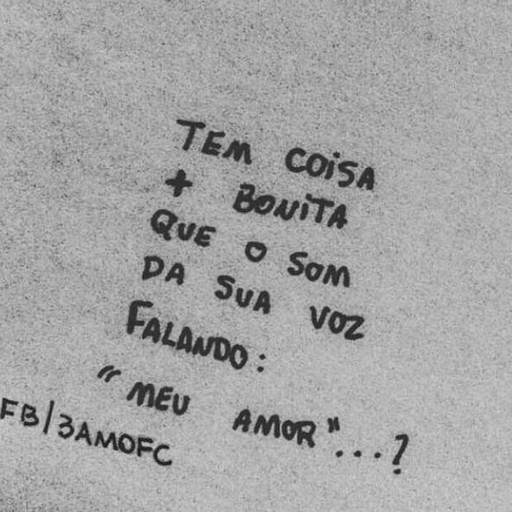 TEM COISA
+ BONITA
QUE O SOM
DA SUA VOZ
FALANDO:
"MEU AMOR"...?
FB/3AMOFC